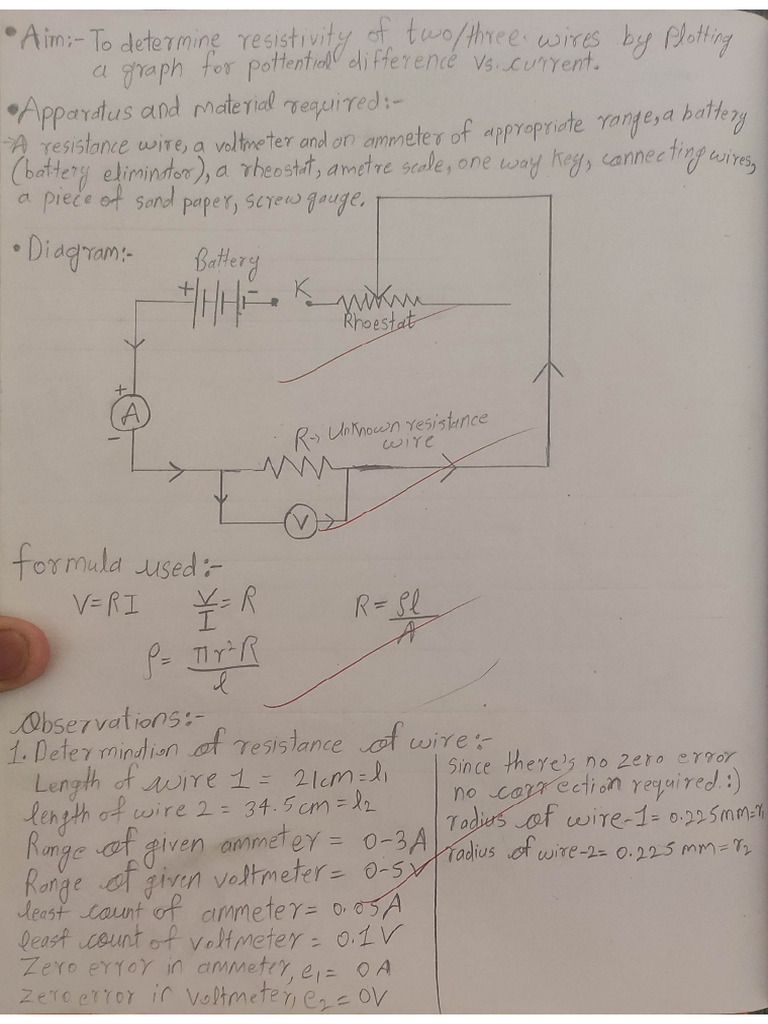 • Aim:- To determine resistivity of two/three wires by Plotting
a graph for pottential difference vs. current.
• Apparatus and material required:-
→ A resistance wire, a voltmeter and an ammeter of appropriate range, a battery
(battery eliminator), a rheostat, a metre scale, one way Key, connecting wires,
a piece of sand paper, screw gauge.
• Diagram:-
Battery
+ - K
Rhoestat
+
A
-
R→ Unknown resistance
wire
V
formula used:-
V=RI V/I = R R = ρl/A
ρ = πr²R/l
Observations:-
1. Determination of resistance of wire:-
Length of wire 1 = 21cm=l₁
length of wire 2 = 34.5cm=l₂
Range of given ammeter = 0-3A
Range of given voltmeter = 0-5V
least count of ammeter= 0.05A
least count of voltmeter = 0.1V
Zero error in ammeter, e₁= 0A
zero error in voltmeter, e₂=0V
since there's no zero error
no correction required :)
radius of wire-1= 0.225mm=r₁
radius of wire-2= 0.225 mm=r₂